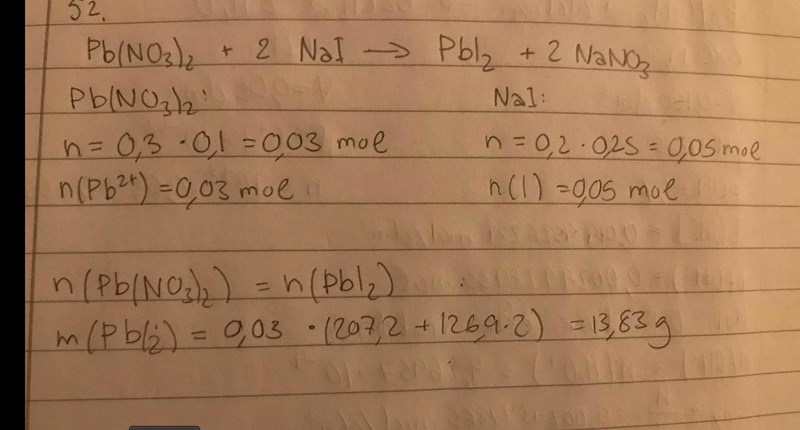 52.
Pb(NO₃)₂ + 2 NaI → PbI₂ + 2 NaNO₃
Pb(NO₃)₂: NaI:
n = 0,3 · 0,1 = 0,03 mol n = 0,2 · 0,25 = 0,05 mol
n(Pb²⁺) = 0,03 mol n(I) = 0,05 mol
n(Pb(NO₃)₂) = n(PbI₂)
m(PbI₂) = 0,03 · (207,2 + 126,9·2) = 13,83 g